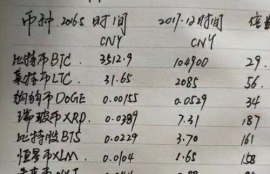 币种 2065 时间 2017-12时间 倍
CNY CNY
比特币BTC 3512.9 104900 29.
莱特币LTC 31.65 2085 56
狗狗币DOGE 0.00155 0.0529 34
瑞波币XRP 0.0389 7.31 187
比特股BTS 0.0229 3.70 161
恒星币XLM 0.0104 1.65 158